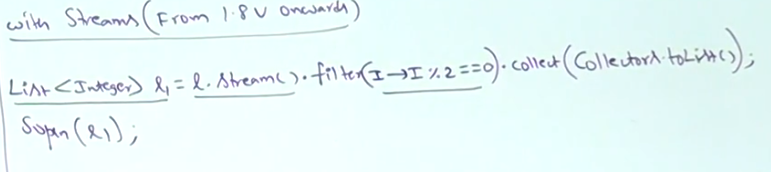 with Streams (From 1.8V onwards)
List<Integer> l1 = l.stream().filter(I→I%2==0).collect(Collectors.toList());
Sopln(l1);